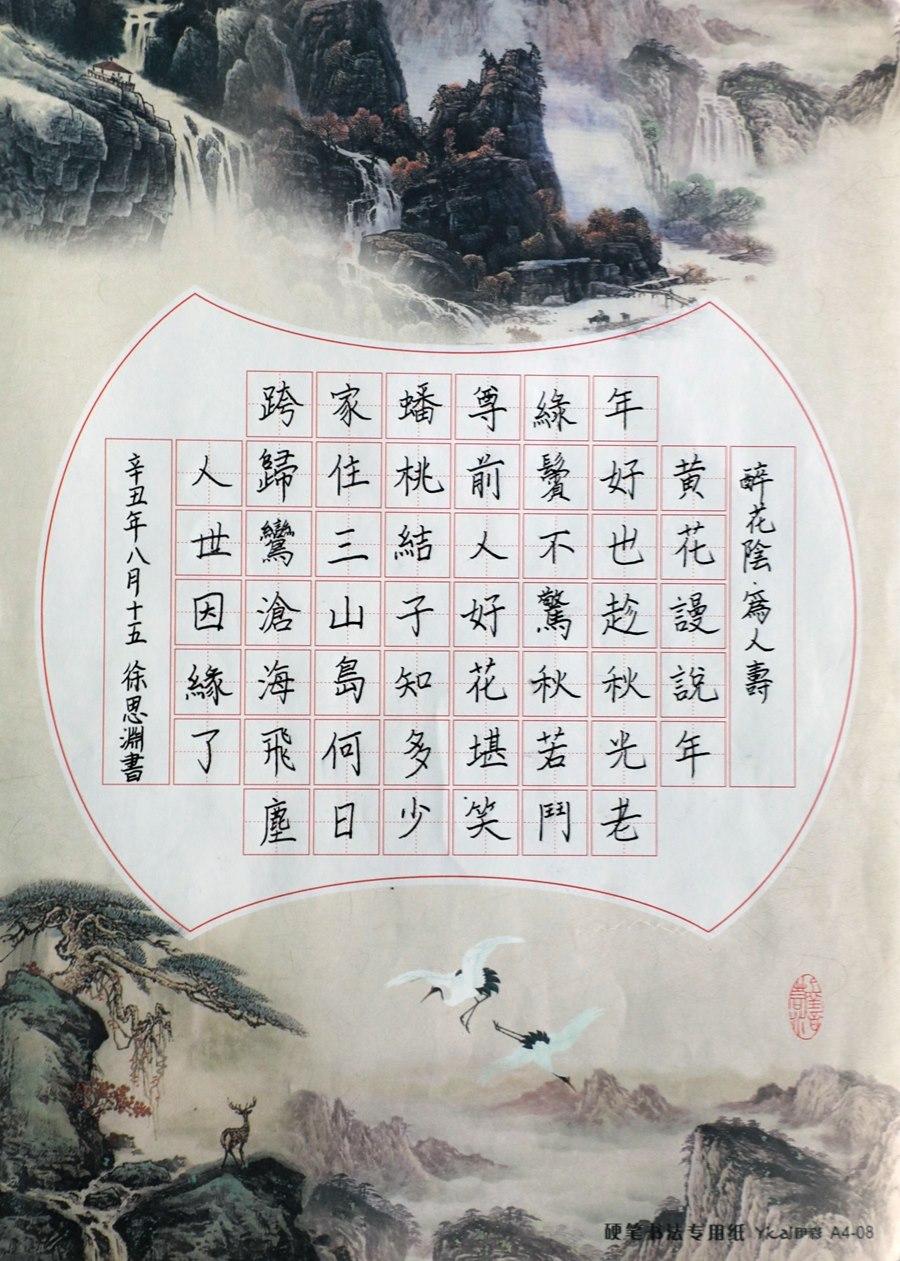 醉花陰·爲人壽
黄花謾說年
年好也趁秋光老
綠鬢不驚秋若鬥
尊前人好花堪笑
蟠桃結子知多少
家住三山島何日
跨歸鸞滄海飛塵
人世因緣了
辛丑年八月十五 徐思淵書
硬笔书法专用纸 Yicai伊彩 A4-08